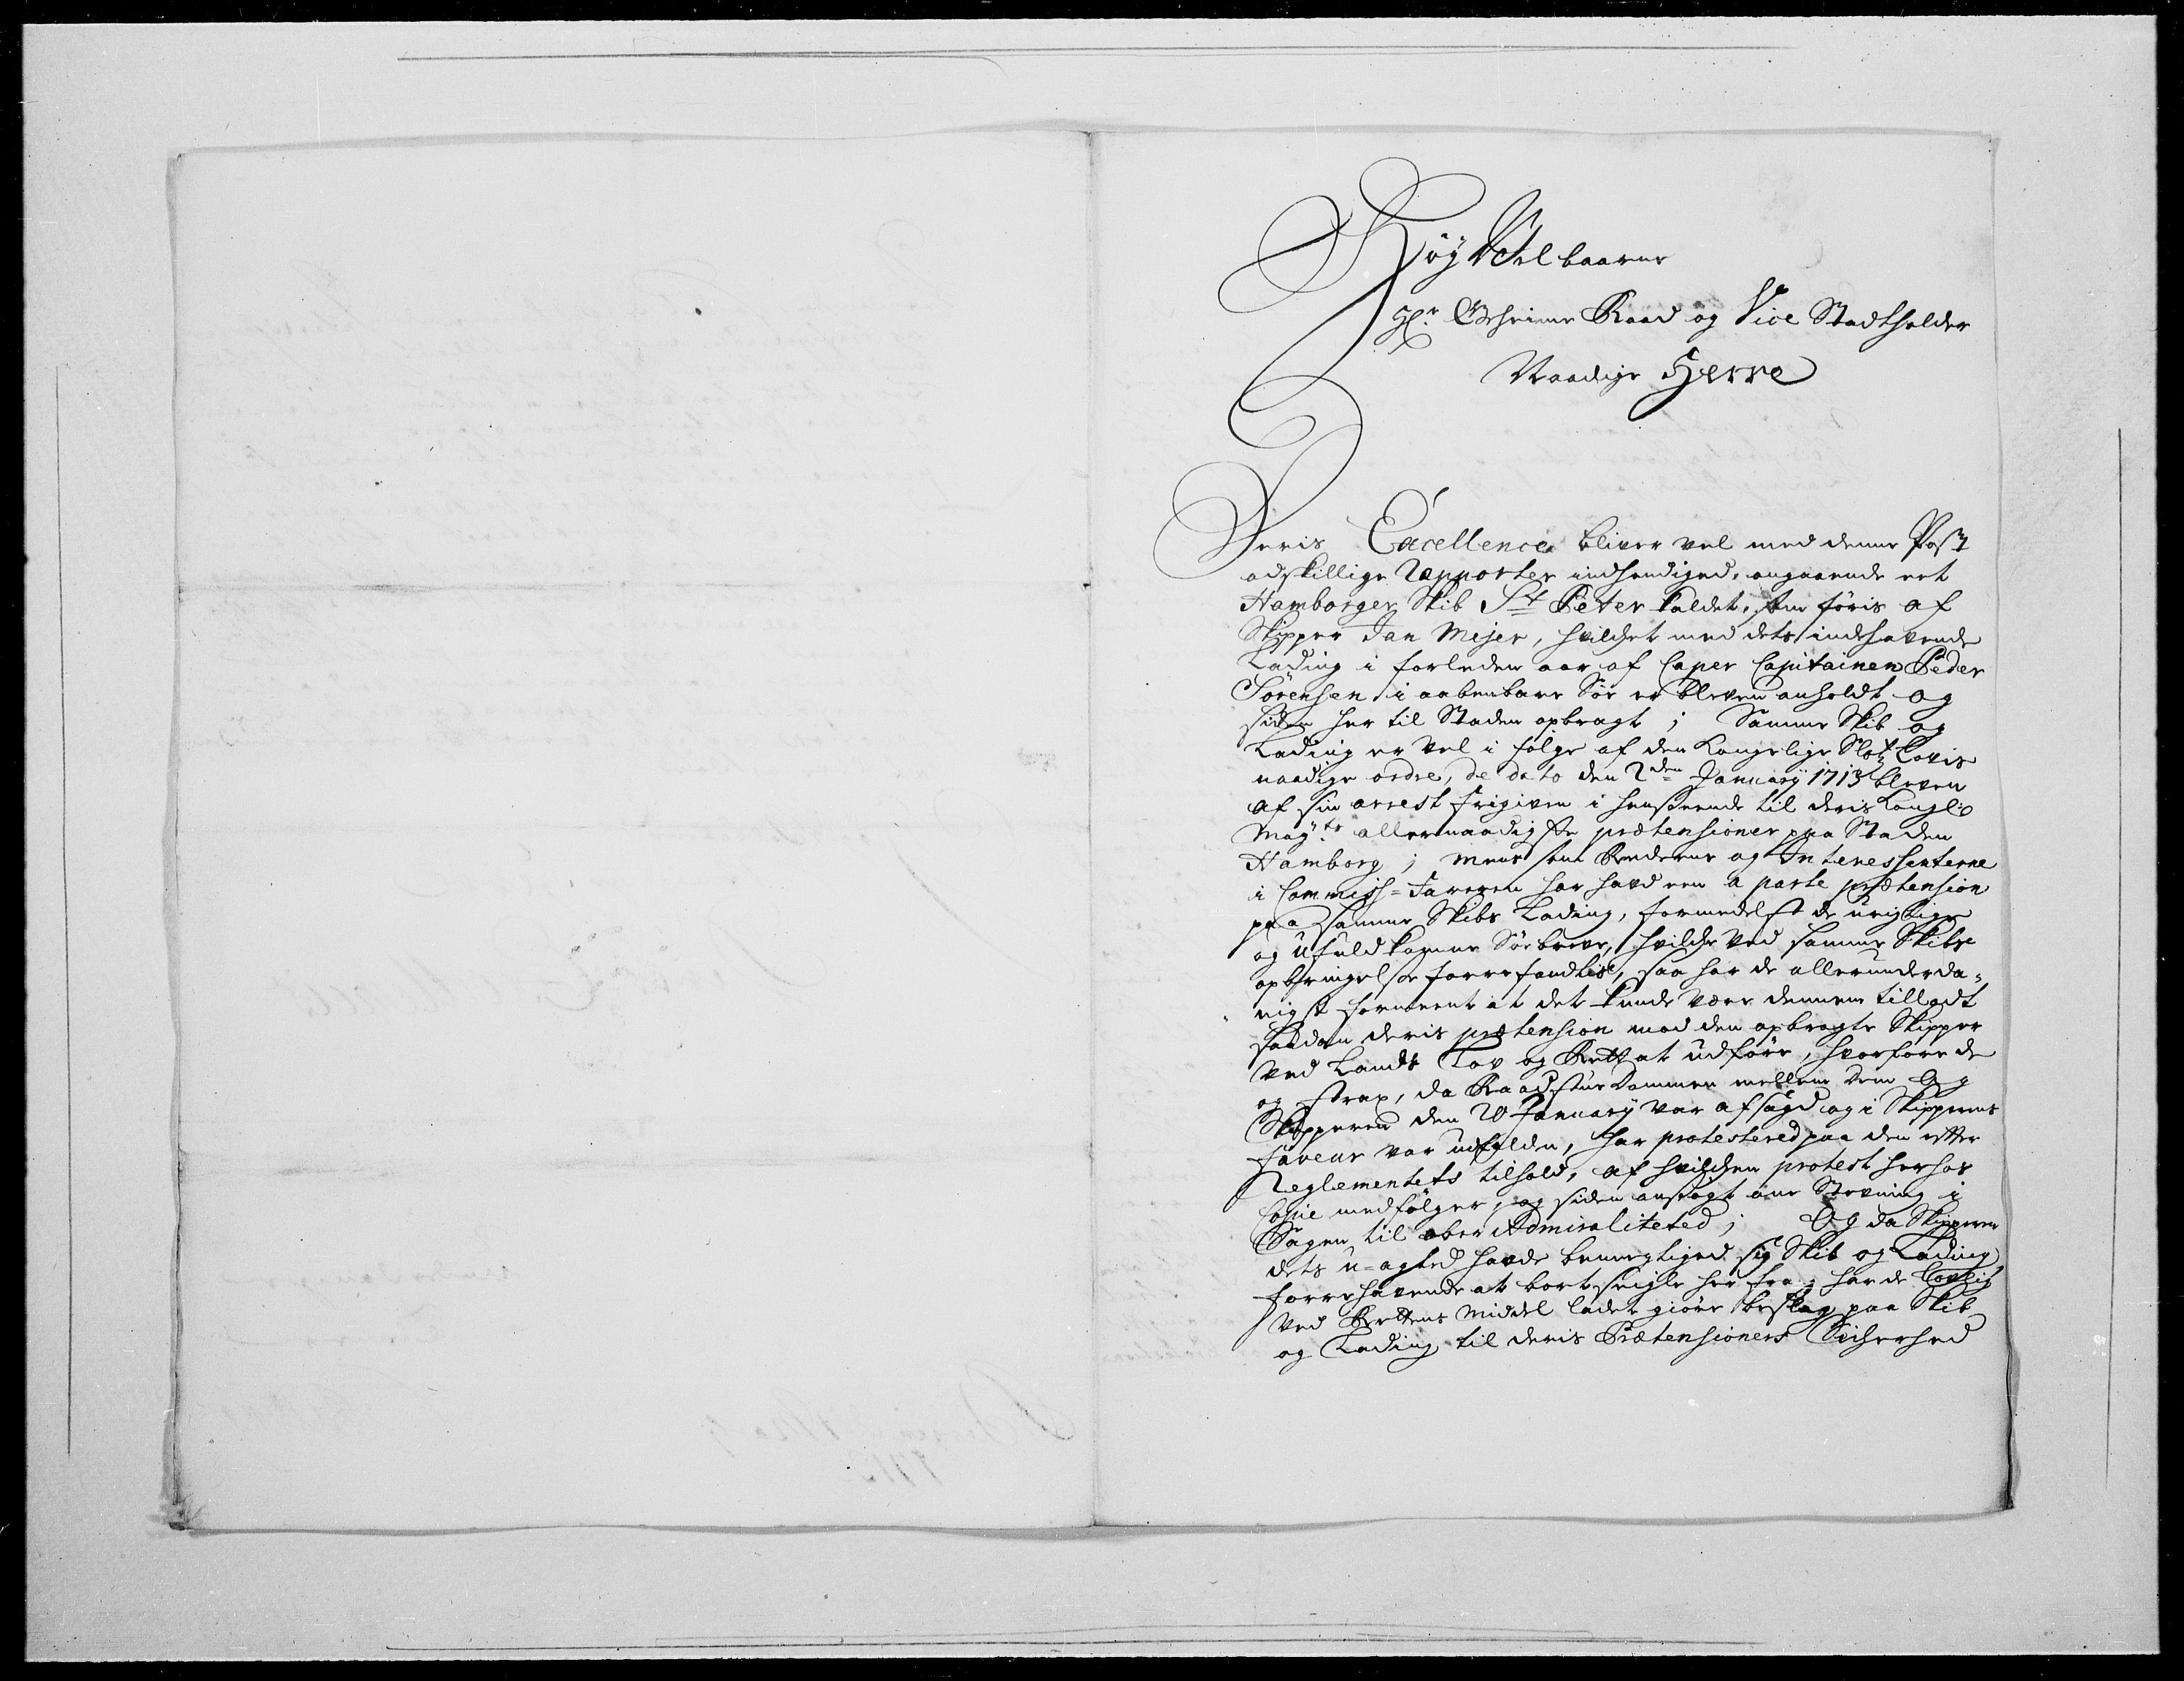 Höy Ædelbaarne
Hr. Geheime Raad og Vice Stadtholder
Naadige Herre
Deris Excellence bliver vel med denne Post
adskillige Rapporter indhendiged, angaaende eet
Hamborger Skib St Peter kaldet, som föris af
Skipper Jan Mejer, hvilchet med dets indehavende
Lading i forleden aar af Caper Capitainen Peder
Sörensen i aabenbare Söe er bleven anholdt og
siden her til Staden opbragt; Samme Skib og
Lading er vel i fölge af den Kongelige Slots Lovis
naadige ordre, de dato den 2den January 1713 bleven
af sin arrest frigiven i henseende til deris Kongl:
Mayts allernaadigste prætensioner paa Staden
Hamborg; mens som Rederne og Interessenterne
i Commiss-Fareren har havd een a parte prætension
paa samme Skibs Lading, formedelst de urigtige
og ufuldkomne Söebreve, hvilche ved samme Skibs
opbringelse forrefandtis, saa har de allerunderda-
nigst formeent at det kunde være dennem tilladt
saadan deris prætension mod den opbragte Skipper
ved Lands Lov og Rett at udföre, hvorfore de
og strax, da Raadstue Dommen mellem dem og
Skipperen den 20 January var afsagd og i Skipperens
faveur var udfalden, har protestered paa den effter
Reglementets tilhold, af hvilchen protest herhos
Copie medfölger, og siden ansögt om Stevning i
Sagen til ober Admiraliteted; Og da Skipperen
dets u-agted havde bemegtiged sig Skib og Lading
forrehavende at bortseigle her fra; har de Lovlig
ved Rettens Middel ladet giöre beslag paa Skib
og Lading til deris Prætensioners Sicherhed